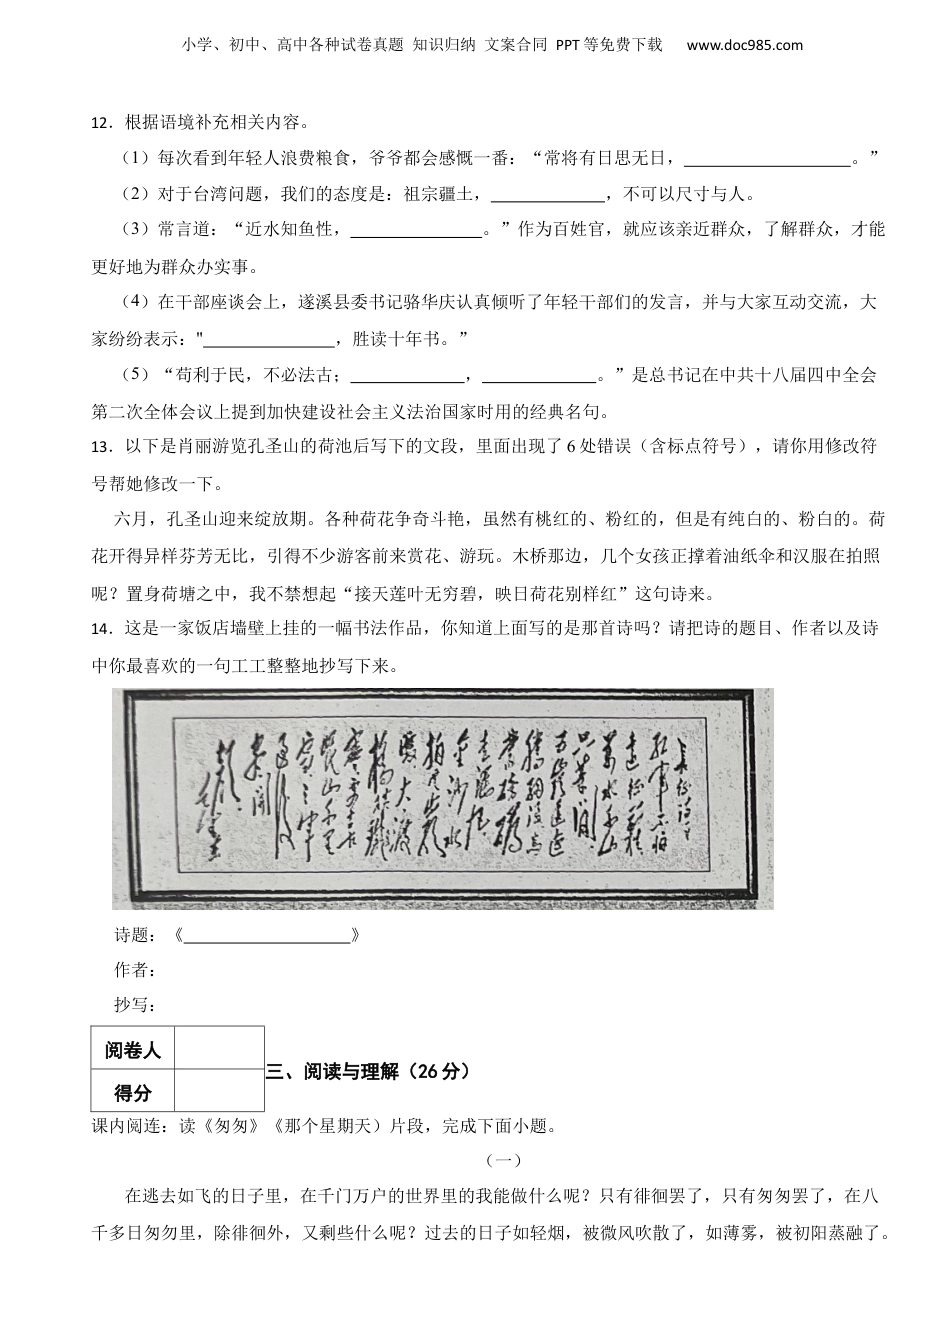 小学、初中、高中各种试卷真题 知识归纳 文案合同 PPT等免费下载 www.doc985.com
12．根据语境补充相关内容。
（1）每次看到年轻人浪费粮食，爷爷都会感慨一番：“常将有日思无日，__________________。”
（2）对于台湾问题，我们的态度是：祖宗疆土，____________，不可以尺寸与人。
（3）常言道：“近水知鱼性，______________。”作为百姓官，就应该亲近群众，了解群众，才能
更好地为群众办实事。
（4）在干部座谈会上，遂溪县委书记骆华庆认真倾听了年轻干部们的发言，并与大家互动交流，大
家纷纷表示："______________，胜读十年书。”
（5）“苟利于民，不必法古；____________，____________。”是总书记在中共十八届四中全会
第二次全体会议上提到加快建设社会主义法治国家时用的经典名句。
13．以下是肖丽游览孔圣山的荷池后写下的文段，里面出现了6处错误（含标点符号），请你用修改符
号帮她修改一下。
六月，孔圣山迎来绽放期。各种荷花争奇斗艳，虽然有桃红的、粉红的，但是有纯白的、粉白的。荷
花开得异样芬芳无比，引得不少游客前来赏花、游玩。木桥那边，几个女孩正撑着油纸伞和汉服在拍照
呢？置身荷塘之中，我不禁想起“接天莲叶无穷碧，映日荷花别样红”这句诗来。
14．这是一家饭店墙壁上挂的一幅书法作品，你知道上面写的是那首诗吗？请把诗的题目、作者以及诗
中你最喜欢的一句工工整整地抄写下来。
诗题：《__________________》
作者：
抄写：
阅卷人
得分
三、阅读与理解（26分）
课内阅连：读《匆匆》《那个星期天）片段，完成下面小题。
（一）
在逃去如飞的日子里，在千门万户的世界里的我能做什么呢？只有徘徊罢了，只有匆匆罢了，在八
千多日匆勿里，除徘徊外，又剩些什么呢？过去的日子如轻烟，被微风吹散了，如薄雾，被初阳蒸融了。